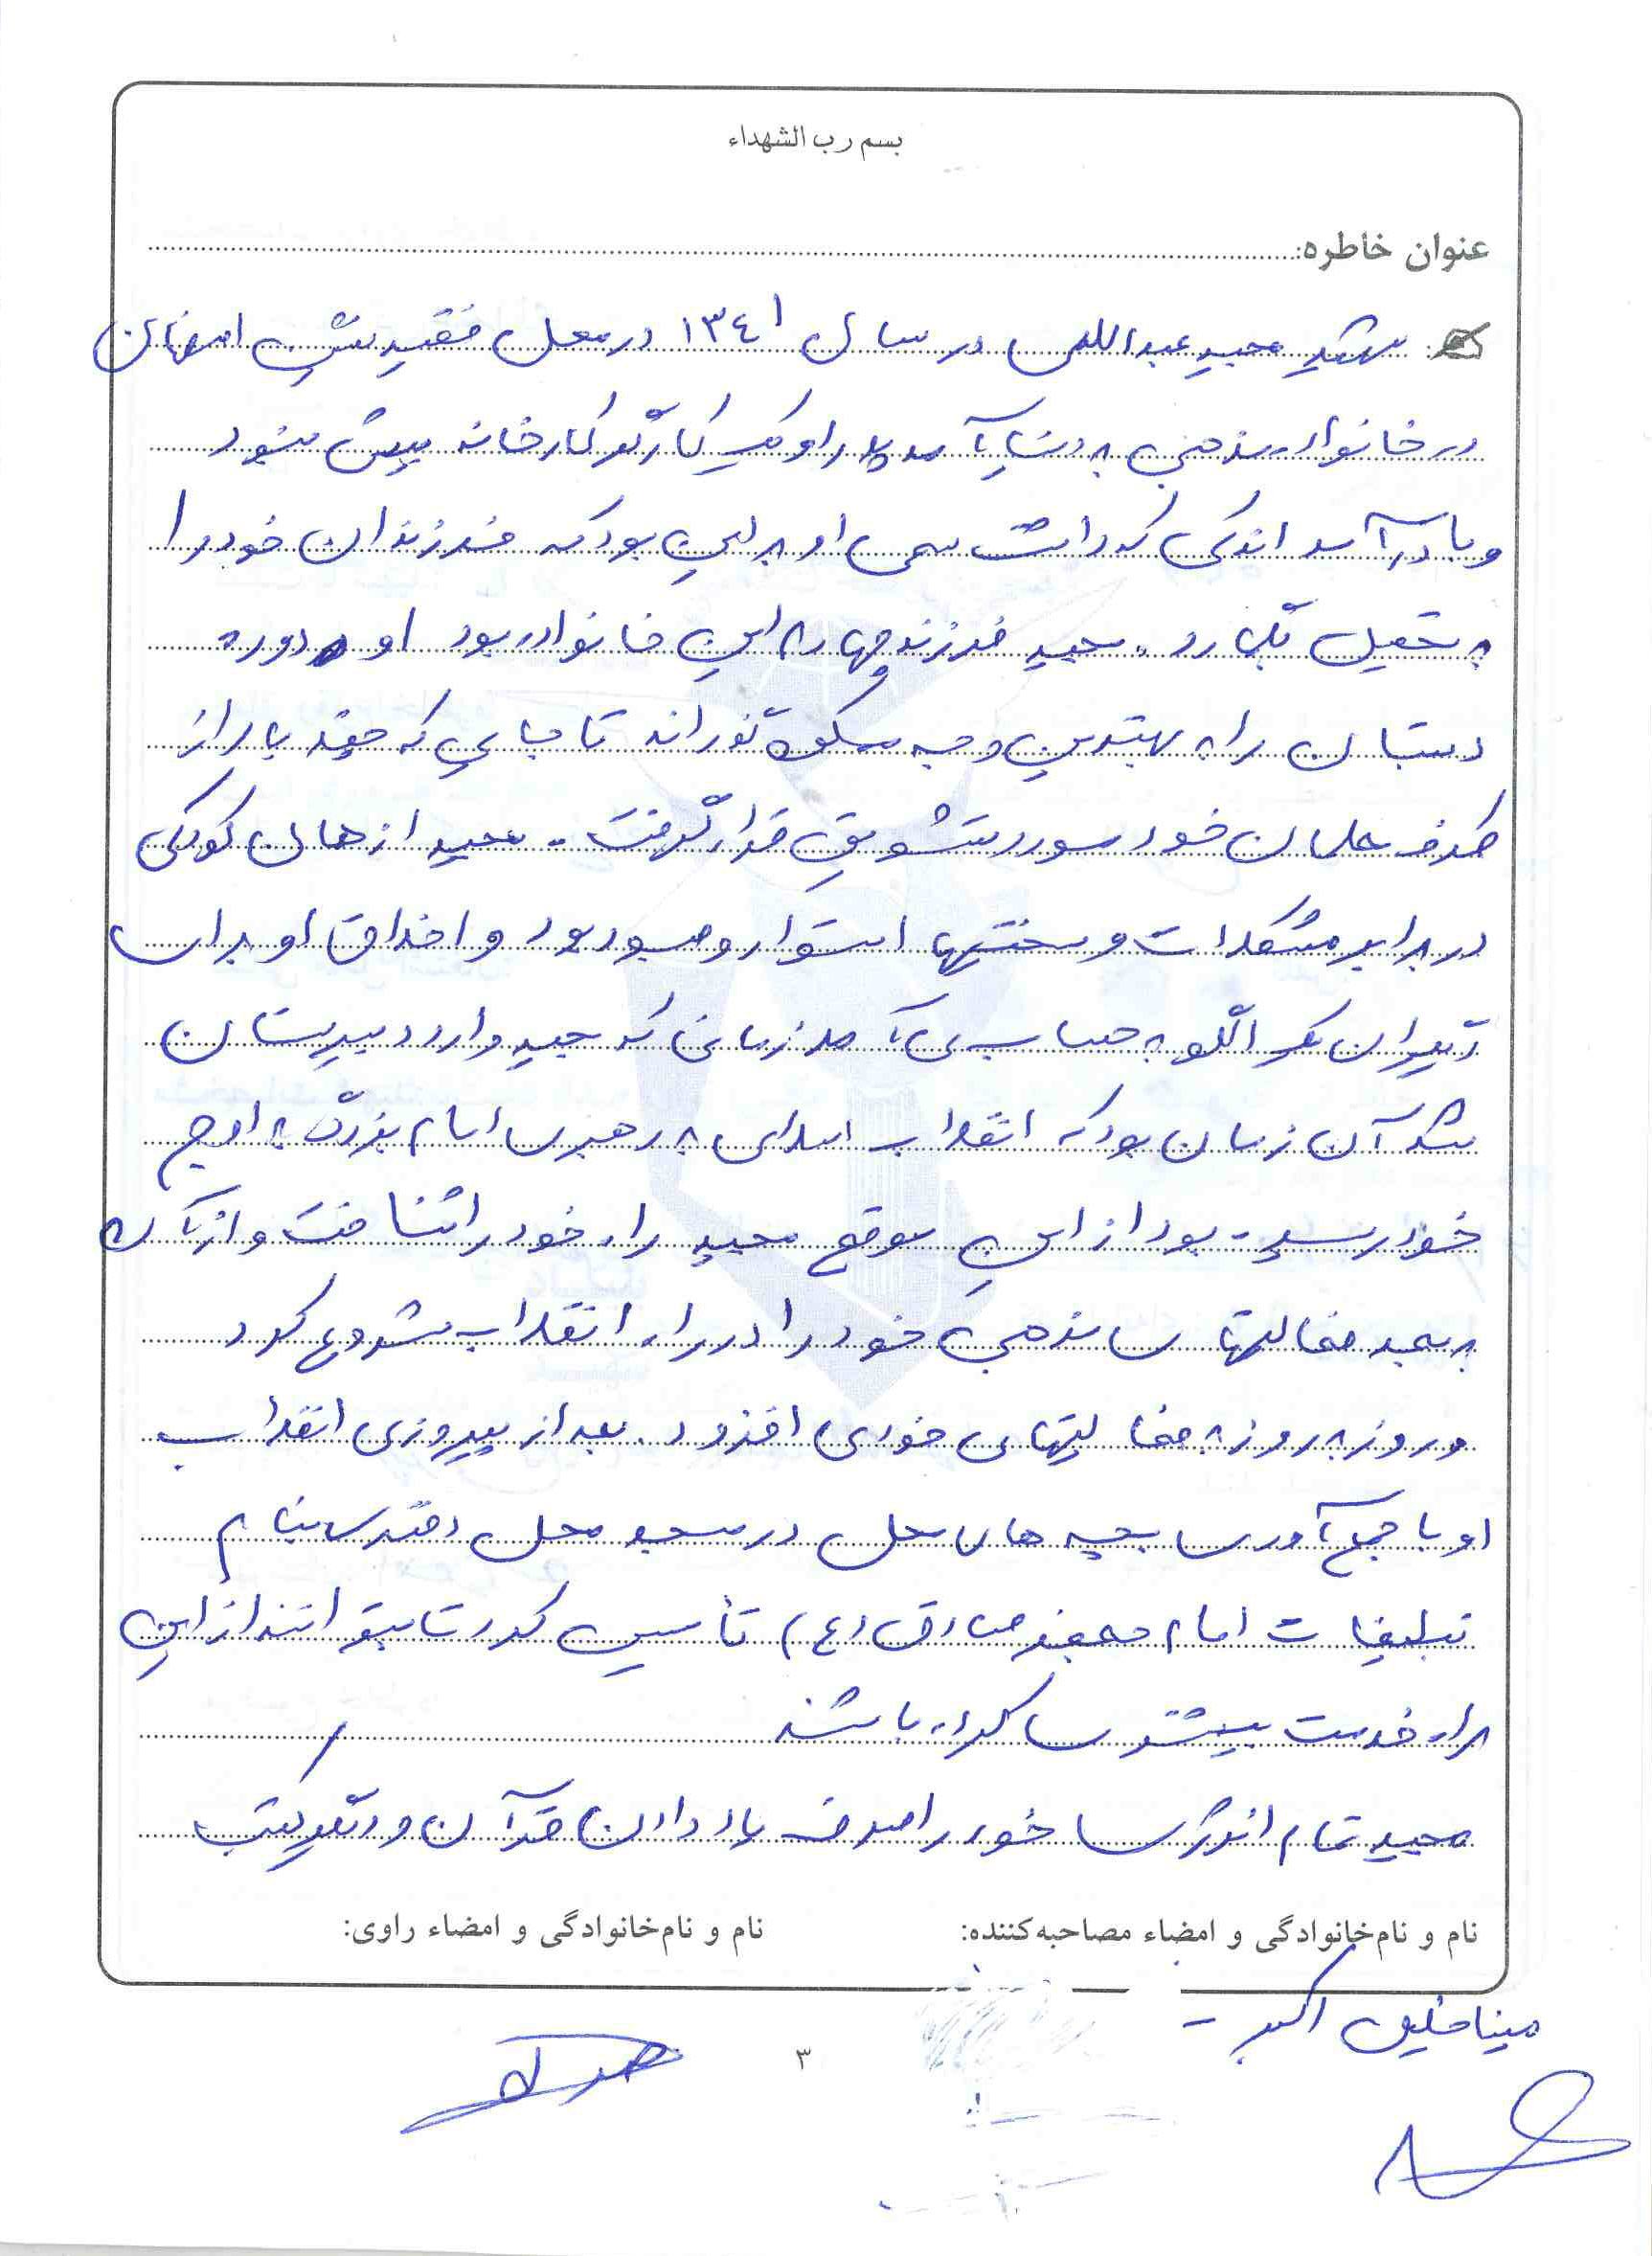 بسم رب الشهداء
عنوان خاطره:
شهید مجید عبداللهی در سال ١٣٤١ در محل اصفهان
در خانواده مذهبی به دنیا آمد پدر او یک کارگر کارخانه بیش نبود
و با درآمد اندکی که داشت سعی او بر این بود که فرزندان خود را
به تحصیل بگمارد. مجید فرزند چهارم این خانواده بود او دوره
دبستان را به بهترین وجه گذراند تا جایی که چند بار از
طرف معلمان خود مورد تشویق قرار گرفت. مجید از همان کودکی
در برابر مشکلات و سختیها استوار و صبور بود و اخلاق او برای
دیگران یک الگو به حساب می آمد زمانی که مجید وارد دبیرستان
شد آن زمان بود که انقلاب اسلامی به رهبری امام بزرگ به اوج
خود رسیده بود از این موقع مجید راه خود را شناخت و از آن
به بعد فعالیتهای مذهبی خود را در راه انقلاب شروع کرد
و روز به روز به فعالیتهای خود می افزود. بعد از پیروزی انقلاب
او با جمع آوری بچه های محل در مسجد محل دفتری بنام
تبلیغات امام جعفر صادق (ع) تأسیس کرد تا بتوانند از این
راه خدمت بیشتری کرده باشند
مجید تمام انرژی خود را صرف یاد دادن قرآن و دیگر کتب
نام و نام‌خانوادگی و امضاء مصاحبه‌کننده:
نام و نام‌خانوادگی و امضاء راوی:
مینا خلیلی اکبر
٣